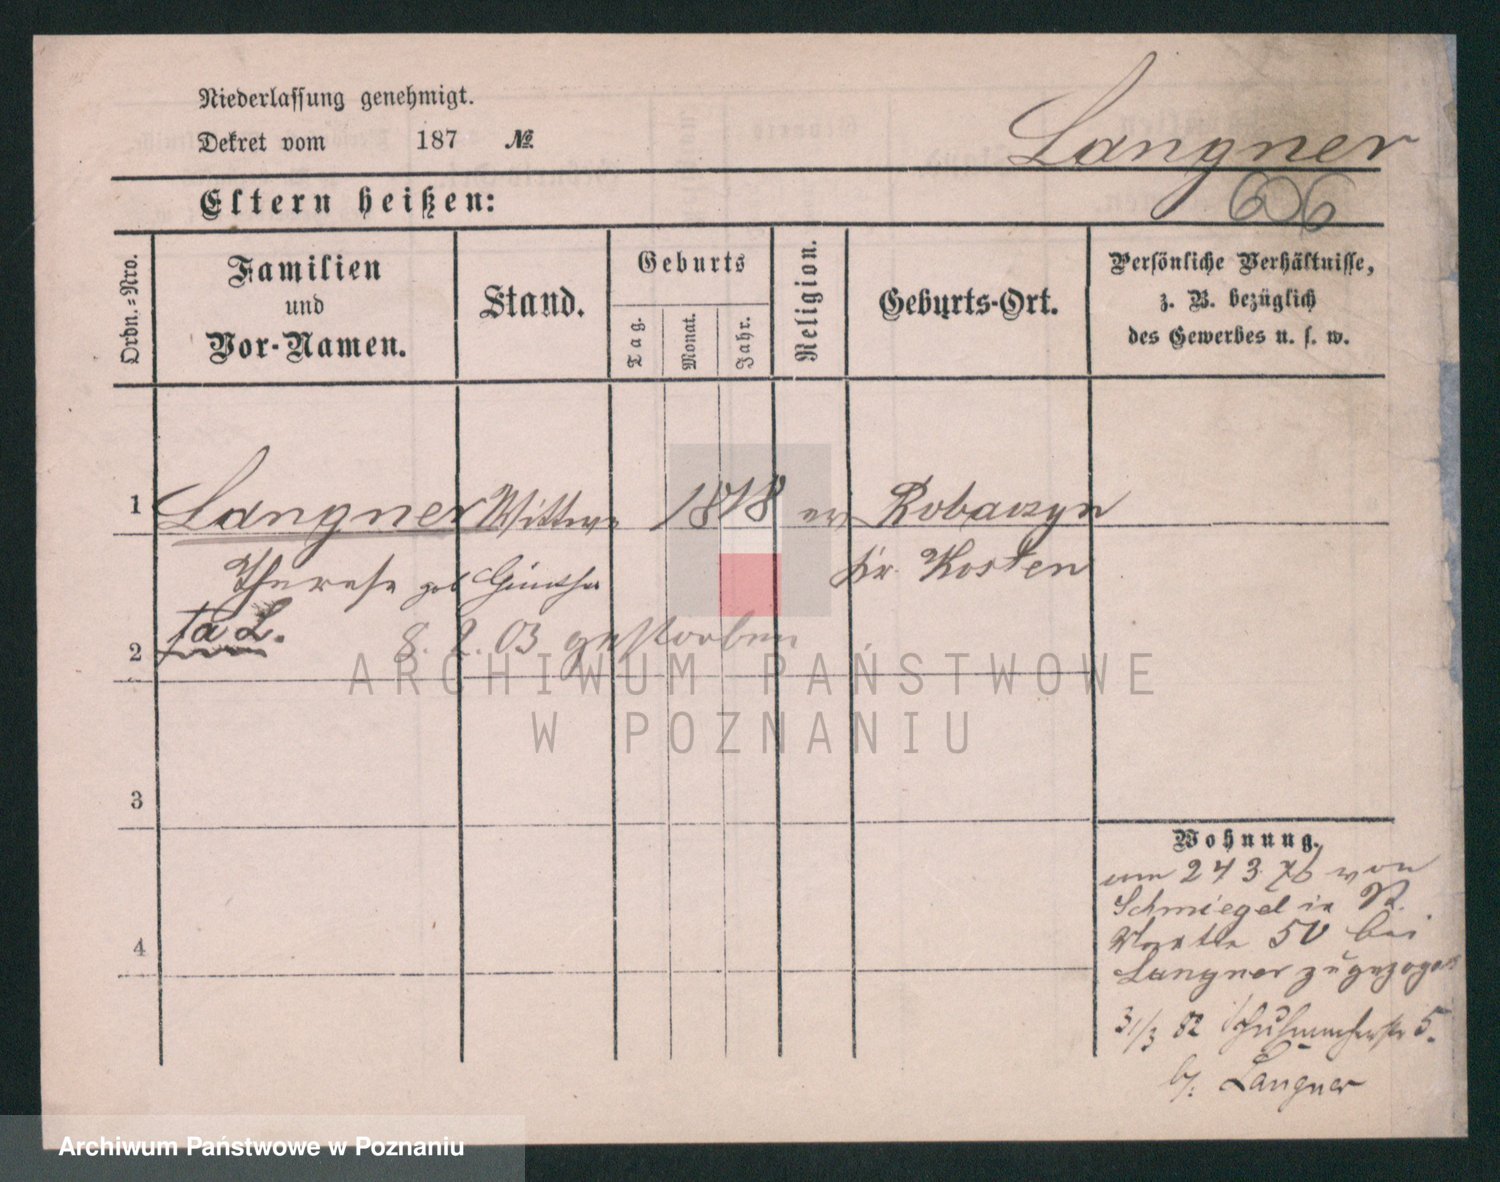 Niederlassung genehmigt.
Dekret vom 187 №
Langner
606
Eltern heißen:
Ordn.-Nro.
Familien
und
Vor-Namen.
Stand.
Geburts
Tag.
Monat.
Jahr.
Religion.
Geburts-Ort.
Persönliche Verhältnisse,
z. B. bezüglich
des Gewerbes u. s. w.
1 Langner Wittwe 1818 ev Robaczyn
Therese geb Günther Kr. Kosten
2 8. 2. 03 gestorben
3
4
Wohnung.
am 24 3 76 von
Schmiegel in St.
Martin 50 bei
Langner zugezogen
31/3 82 Schuhmacherstr 5.
b/. Langner
ARCHIWUM PAŃSTWOWE
W POZNANIU
Archiwum Państwowe w Poznaniu